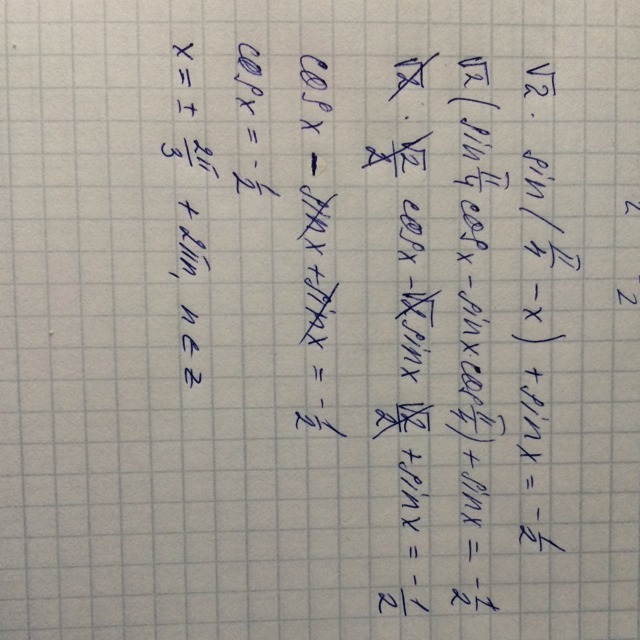 2 2
√2 · sin(π/4 - x) + sinx = - 1/2
√2 (sin π/4 cosx - sinx·cos π/4) + sinx = - 1/2
√2 · √2/2 cosx - √2 sinx √2/2 + sinx = - 1/2
cosx - sinx + sinx = - 1/2
cosx = - 1/2
x = ± 2π/3 + 2πn, n ∈ z